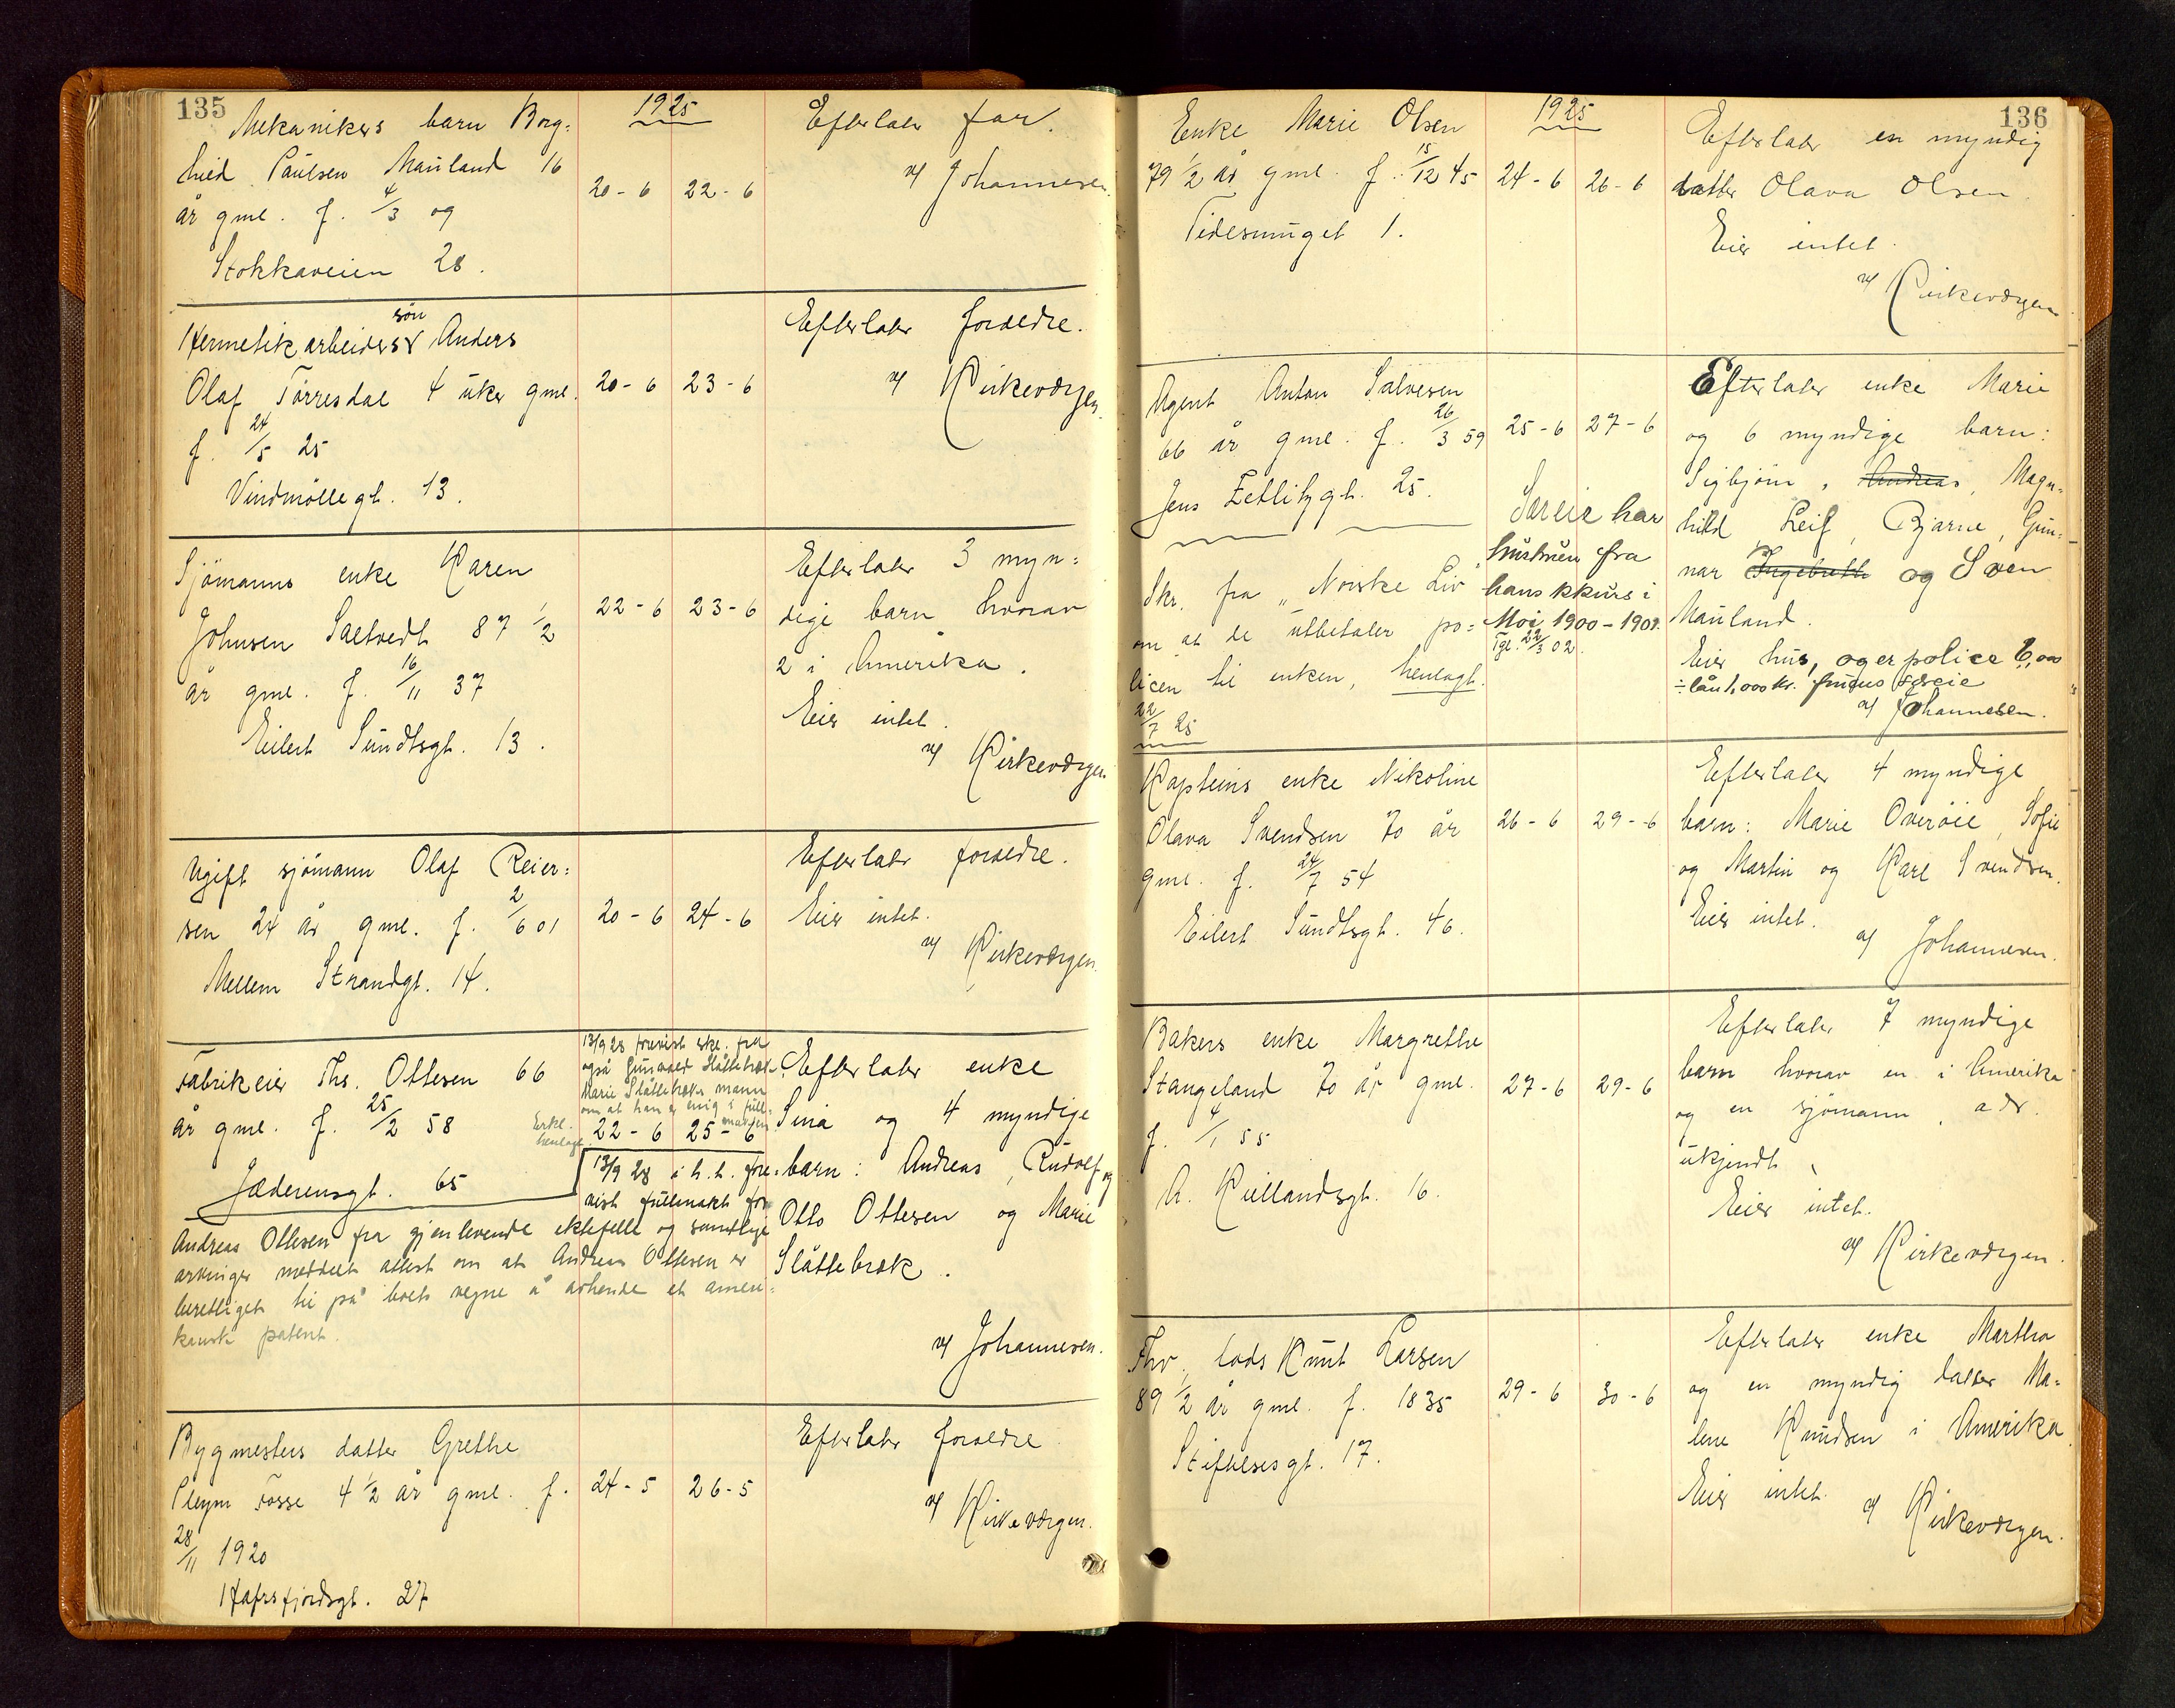 135
1925
Mekanikers barn Borg=
hild Paulsen Mauland 16
år gml. f. 4/3 09
Stokkaveien 28.
20-6 22-6
Efterlater far.
v/ Johannesen.
Hermetikarbeiders søn Anders
Olaf Tørresdal 4 uker gml.
f. 24/5 25
Vindmøllegt. 13.
20-6 23-6
Efterlater foreldre.
v/ Kirkevergen.
Sjømanns enke Karen
Johnsen Saltvedt 87 1/2
år gml. f. 16/11 37
Eilert Sundtsgt. 13.
22-6 23-6
Efterlater 3 myn=
dige barn hvorav
2 i Amerika.
Eier intet.
v/ Kirkevergen
Ugift sjømann Olaf Reier=
sen 24 år gml. f. 2/6 01
Mellem Strandgt. 14.
20-6 24-6
Efterlater foreldre.
Eier intet.
v/ Kirkevergen.
Fabrikeier Ths. Ottesen 66
år gml. f. 25/2 58
Jæderensgt. 65
13/9 28 forevist erkl. fra
også Gunvald Slåttebræk
Marie Slåttebræks mann
om at han er enig i full=
makten
Erkl.
henlagt.
22-6 25-6
13/9 28 i h.h. fore=
vist fullmakt for
Andreas Ottesen fra gjenlevende ektefelle og samtlige
arvinger meddelt attest om at Andreas Ottesen er
berettiget til på boets vegne å avhende et ameri=
kansk patent.
Efterlater enke
Sina og 4 myndige
barn: Andreas, Rudolf og
Otto Ottesen og Marie
Slåttebræk.
v/ Johannesen.
Bygmesters datter Grethe
Pleym Fosse 4 1/2 år gml. f.
28/11 1920
Hafrsfjordsgt. 27
24-5 26-5
Efterlater foreldre
v/ Kirkevergen.
136
1925
Enke Marie Olsen
79 1/2 år gml. f. 15/12 45
Tidesmuget 1.
24-6 26-6
Efterlater en myndig
datter Olava Olsen.
Eier intet.
v/ Kirkevergen
Agent Anton Salvesen
66 år gml. f. 26/3 59
Jens Zetlitzgt. 25.
25-6 27-6
Skr. fra "Norske Liv"
om at de utbetaler po=
licen til enken, henlagt.
22/7 25
Særeie har
hustruen fra
hans kkurs i
Moi 1900-1901.
Tgl. 22/3 02.
Efterlater enke Marie
og 6 myndige barn:
Sigbjørn, Andreas, Magn=
hild Leif, Bjarne, Gun=
nar Ingebreth og Sven
Mauland.
Eier hus, og er police 6,000
÷ lån 1,000 kr. fruens særeie
v/ Johannesen.
Kapteins enke Nikoline
Olava Svendsen 70 år
gml. f. 24/7 54
Eilert Sundtsgt. 46.
26-6 29-6
Efterlater 4 myndige
barn: Marie Overøie, Sofie
og Martin og Karl Svendsen.
Eier intet.
v/ Johannesen.
Bakers enke Margrethe
Stangeland 70 år gml.
f. 4/1 55
A. Kiellandsgt. 16.
27-6 29-6
Efterlater 7 myndige
barn hvorav en i Amerika
og en sjømann, adr.
ukjendt.
Eier intet.
v/ Kirkevergen.
Fhv. lods Knut Larsen
89 1/2 år gml. f. 1835
Stiftelsesgt. 17.
29-6 30-6
Efterlater enke Martha
og en myndig datter Ma=
lene Knudsen i Amerika
Eier intet.
v/ Kirkevergen.